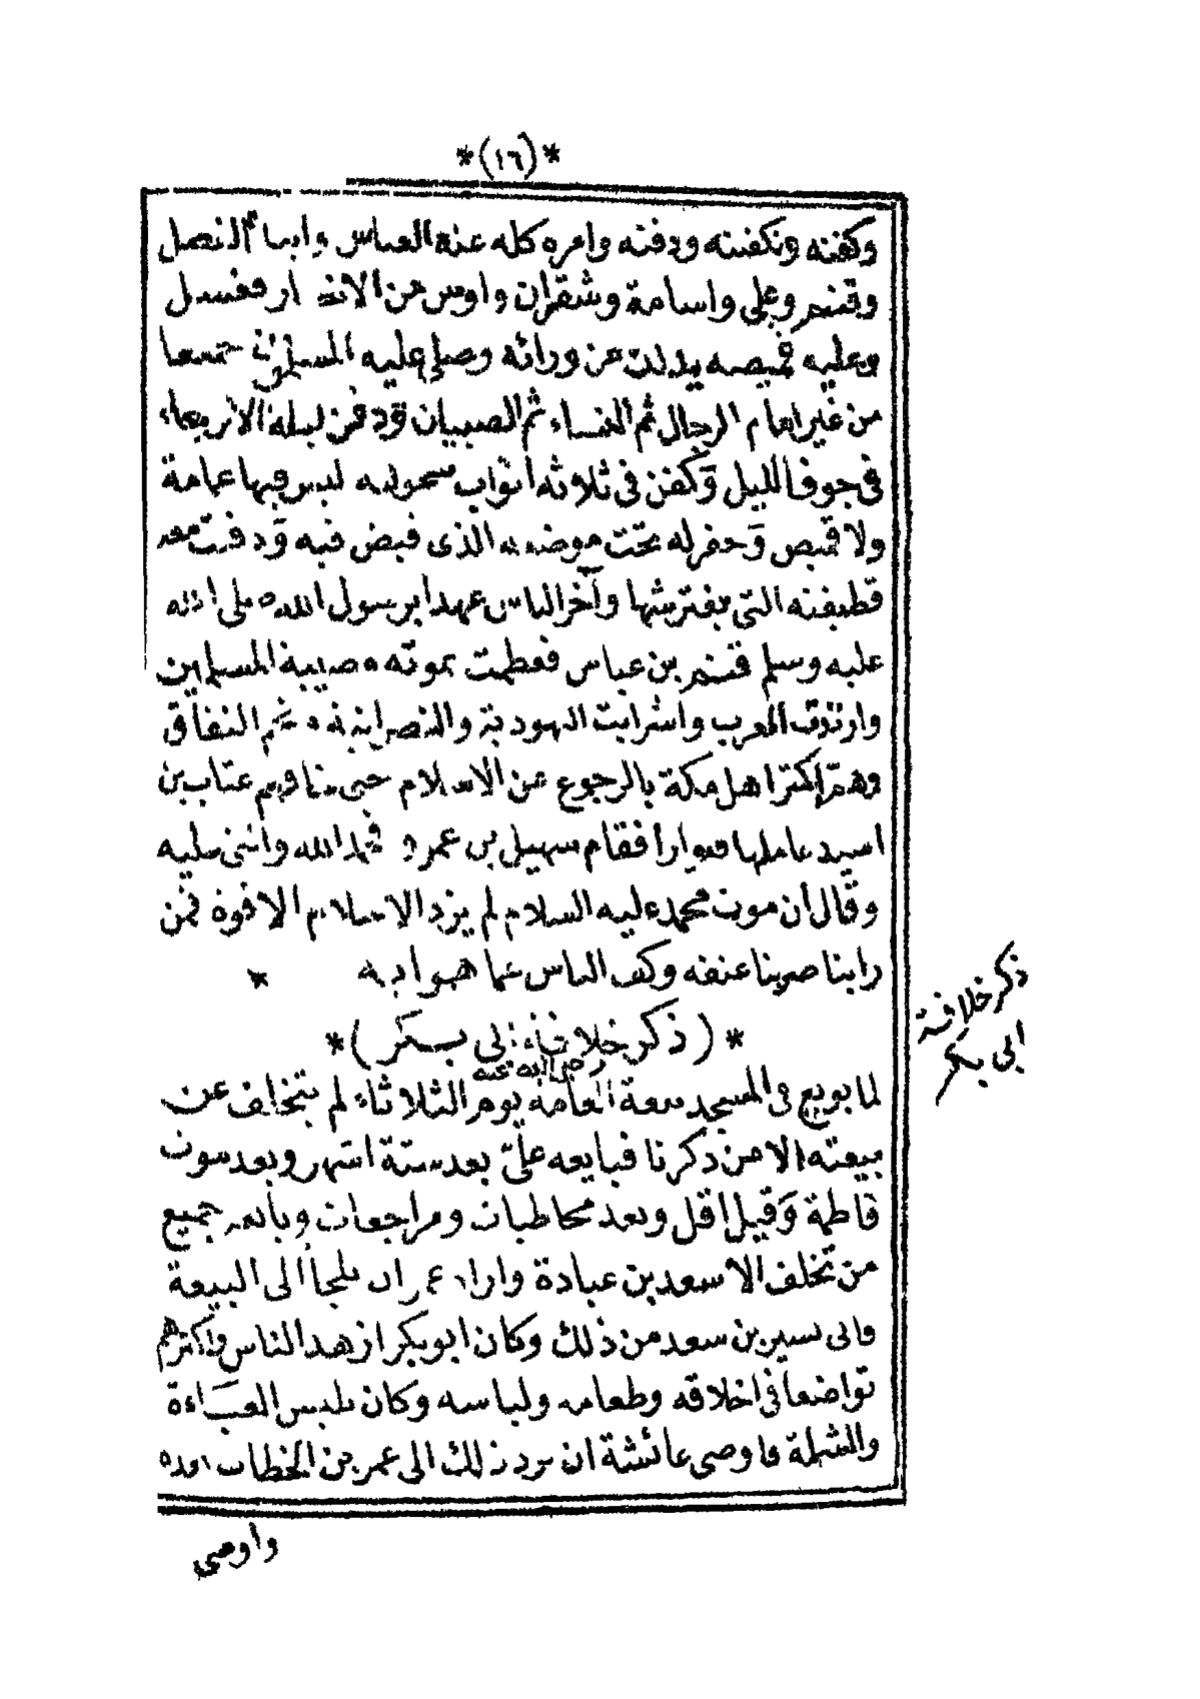 *(١٦)*
وكفنه وتكفينه ودفنه وامره كله عند العباس وابناه الفضل
وقثم وعلى واسامة وشقران واوس من الانصار فغسل
وعليه قميصه يدلك من ورائه وصلى عليه المسلمون جميعا
من غير امام الرجال ثم النساء ثم الصبيان ودفن ليلة الاربعاء
فى جوف الليل وكفن فى ثلاثة اثواب سحوليه ليس فيها عمامة
ولا قميص وحفر له تحت موضعه الذى قبض فيه ودفنت معه
قطيفته التى يفترشها وآخر الناس عهدا برسول الله صلى الله
عليه وسلم قثم بن عباس فعظمت بموته مصيبة المسلمين
وارتدت العرب واشرابت اليهودية والنصرانية ونجم النفاق
وهمّ اكثر اهل مكة بالرجوع عن الاسلام حتى خافهم عتاب بن
اسيد عاملها فتوارا فقام سهيل بن عمرو فحمد الله واثنى عليه
وقال ان موت محمد عليه السلام لم يزد الاسلام الا قوة فمن
رابنا ضربنا عنقه وكف الناس عما هموا به *
*(ذكر خلافة ابى بكر)*
رضى الله عنه
ذكر خلافة
ابى بكر
لما بويع فى المسجد بيعة العامة يوم الثلاثاء لم يتخلف عن
بيعته الا من ذكرنا فبايعه علىّ بعد ستة اشهر وبعد موت
فاطمة وقيل اقل وبعد مخاطبات ومراجعات وبايعه جميع
من تخلف الا سعد بن عبادة واراد عمر ان يلجأ الى البيعة
فابى بشير بن سعد من ذلك وكان ابو بكر ازهد الناس واكثرهم
تواضعا فى اخلاقه وطعامه ولباسه وكان يلبس العباءة
والشملة فاوصى عائشة ان يرد ذلك الى عمر بن الخطاب بعده
واوصى